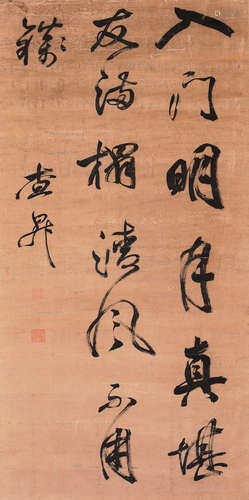 入门明月真堪
友满榻清风不用
钱
查昇